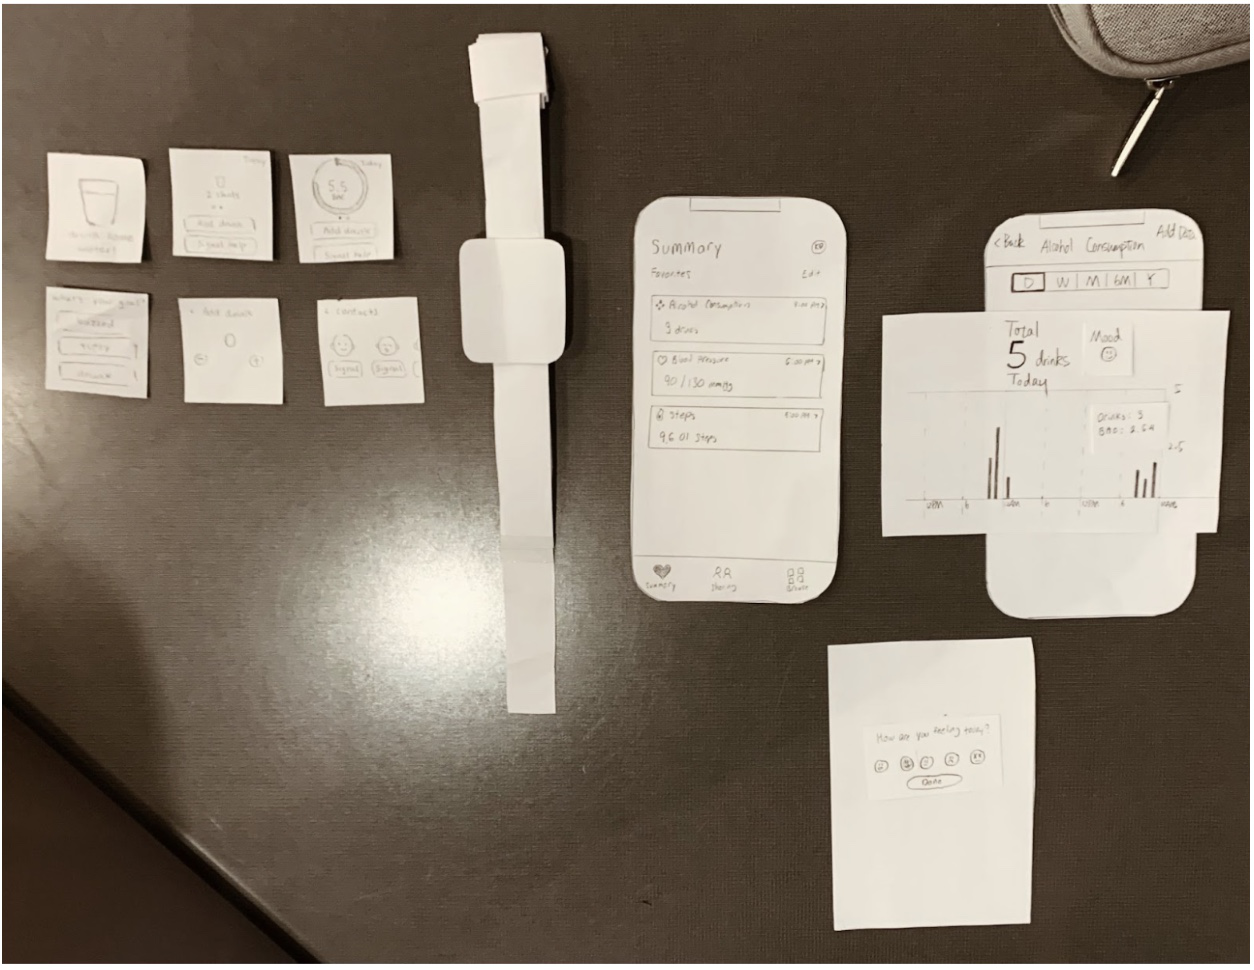 Today
2 drinks
Add drink
Signal help
Today
5.5
BAC
Add drink
Signal help
What's your goal?
buzzed
drunk
< Add drink
0
< Contacts
Signal
Signal
Summary
Favorites
Edit
Alcohol Consumption
3 drinks
Blood Pressure
90/130 mmHg
Steps
9,601 Steps
Summary
Sharing
Browse
< Back
Alcohol Consumption
Add Data
D W M 6M Y
Total
5 drinks
Today
Mood
5
Drinks: 3
2.5
6
6
6
How are you feeling today?
Done